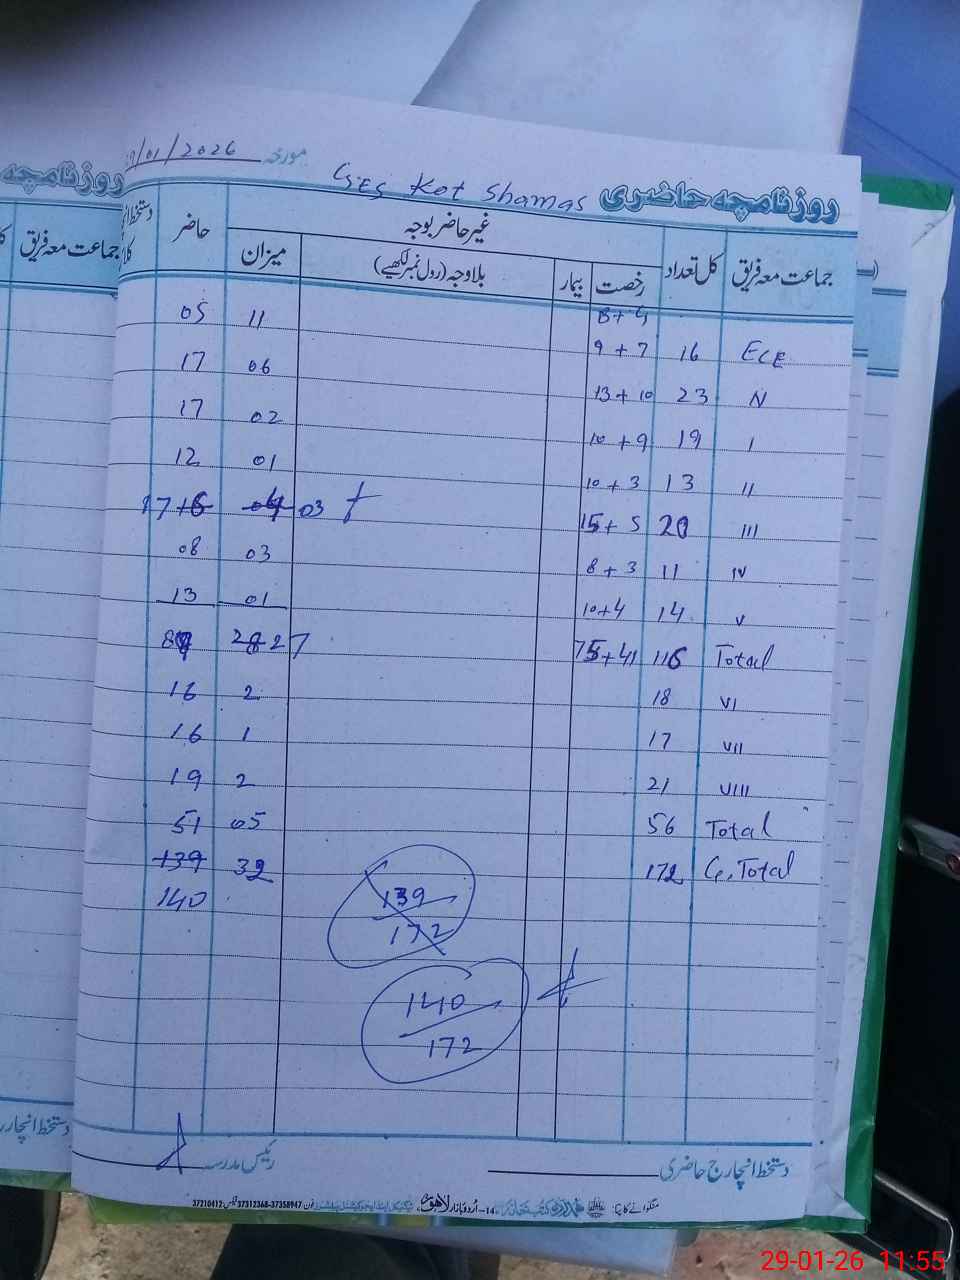 روزنامچہ حاضری GES Kot Shamas مورخہ 29/01/2026
جماعت معہ فریق کل تعداد غیر حاضر بوجہ حاضر
رخصت بیمار بلاوجہ (رول نمبر لکھیے) میزان
B + G
ECE 16 9 + 7 11 05
N 23 13 + 10 06 17
I 19 10 + 9 02 17
II 13 10 + 3 01 12
III 20 15 + 5 04 03 17 16
IV 11 8 + 3 03 08
V 14 10+4 01 13
Total 116 75+41 28 27 89
VI 18 2 16
VII 17 1 16
VIII 21 2 19
Total 56 05 51
G.Total 172 32 139
140
139
172
140
172
دستخط انچارج حاضری رئیس مدرسہ
منگوانے کا پتہ: 14-اُردو بازار لاہور 37210412 37312368-37358947
روزنامچہ
جماعت معہ فریق
29-01-26 11:55